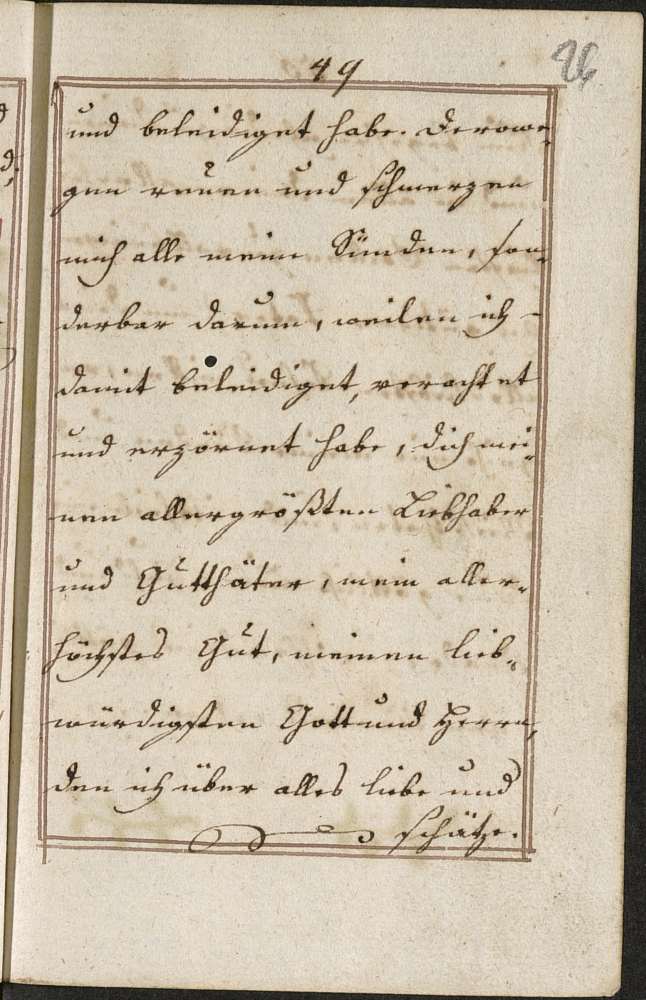 49
26
und beleidiget habe. Derowe-
gen reüen und schmerzen
mich alle meine Sünden, son-
derbar darum, weilen ich
damit beleidiget, verachtet
und erzörnet habe, dich mei-
nen allergrößten Liebhaber
und Gutthäter, mein aller-
höchstes Gut, meinen lieb-
würdigsten Gott und Herrn,
den ich über alles liebe und
schätze.